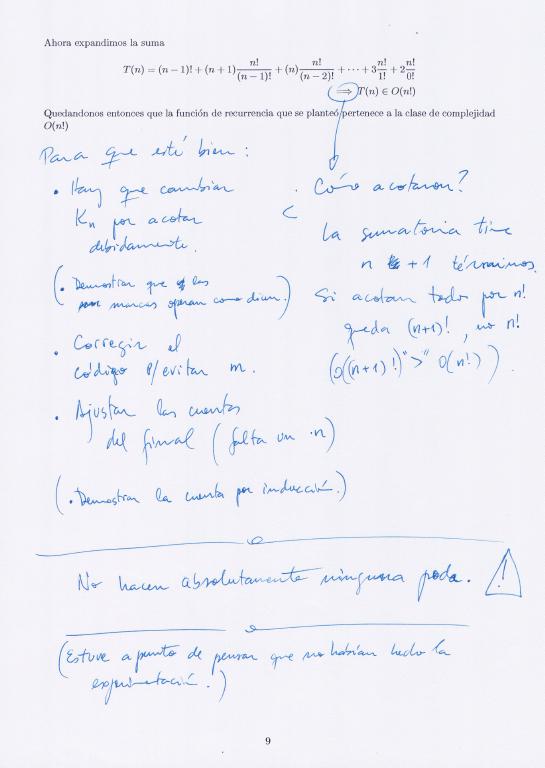 Ahora expandimos la suma
T(n) = (n − 1)! + (n + 1) n!/(n − 1)! + (n) n!/(n − 2)! + ⋯ + 3 n!/1! + 2 n!/0!
⟹ T(n) ∈ O(n!)
Quedandonos entonces que la función de recurrencia que se planteó pertenece a la clase de complejidad
O(n!)
Para que esté bien:
• Hay que cambiar
Kn por acotar
debidamente.
(• Demostrar que las
marcas operan como dicen.)
• Corregir el
código p/evitar m.
• Ajustar las cuentas
del final (falta un ·n)
(• Demostrar la cuenta por inducción.)
Cómo acotaron?
La sumatoria tiene
n + 1 términos.
Si acotan todo por n!
queda (n+1)!, no n!
(O((n+1)!) ">" O(n!))
No hacen absolutamente ninguna poda. !
(Estuve a punto de pensar que no habían hecho la
experimentación!)
9